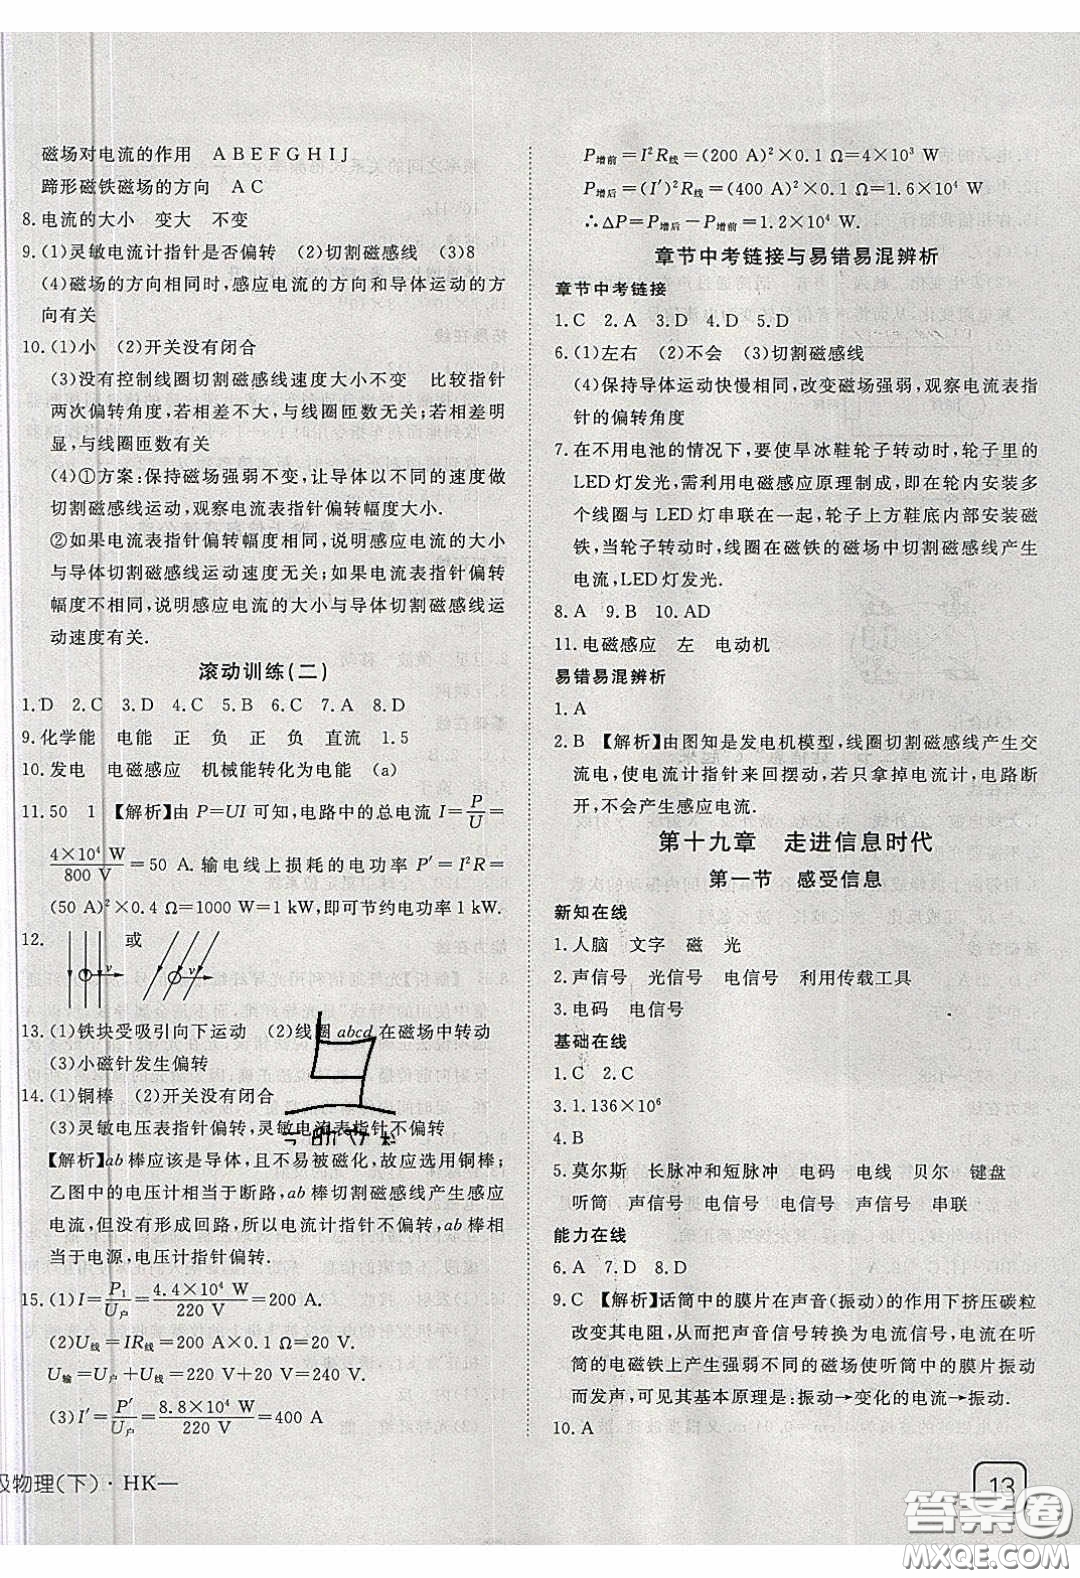 磁场对电流的作用 ABEFGHIJ
蹄形磁铁磁场的方向 AC
8.电流的大小 变大 不变
9.(1)灵敏电流计指针是否偏转 (2)切割磁感线 (3)8
(4)磁场的方向相同时,感应电流的方向和导体运动的方
向有关
10.(1)小 (2)开关没有闭合
(3)没有控制线圈切割磁感线速度大小不变 比较指针
两次偏转角度,若相差不大,与线圈匝数无关;若相差明
显,与线圈匝数有关
(4)①方案:保持磁场强弱不变,让导体以不同的速度
切割磁感线,观察电流表指针偏转幅度大小.
②如果电流表指针偏转幅度相同,说明感应电流的大小
与导体切割磁感线运动速度无关;如果电流表指针偏转
幅度不相同,说明感应电流的大小与导体切割磁感线运
动速度有关.
滚动训练(二)
1.D 2.C 3.D 4.C 5.B 6.C 7.A 8.D
9.化学能 电能 正 负 正 负 直流 1.5
10.发电 电磁感应 机械能转化为电能 (a)
11.50 1 【解析】由 P=UI 可知,电路中的总电流 I=P/U=
4×10⁴ W/800 V=50 A.输电线上损耗的电功率 P′=I²R=
(50 A)²×0.4 Ω=1000 W=1 kW,即可节约电功率 1 kW.
12. 或
v v
13.(1)铁块受吸引向下运动 (2)线圈 abcd 在磁场中转动
(3)小磁针发生偏转
14.(1)铜棒 (2)开关没有闭合
(3)灵敏电压表指针偏转,灵敏电流表指针不偏转
【解析】ab 棒应该是导体,且不易被磁化,故应选用铜棒;
乙图中的电压计相当于断路,ab 棒切割磁感线产生感应
电流,但没有形成回路,所以电流计指针不偏转,ab 棒相
当于电源,电压计指针偏转.
15.(1)I=P₁/U户=4.4×10⁴ W/220 V=200 A.
(2)U线=IR线=200 A×0.1 Ω=20 V.
U输=U户+U线=220 V+20 V=240 V.
(3)I′=P′/U户=8.8×10⁴ W/220 V=400 A
级物理(下)·HK—
P增前=I²R线=(200 A)²×0.1 Ω=4×10³ W
P增后=(I′)²R线=(400 A)²×0.1 Ω=1.6×10⁴ W
∴ΔP=P增后−P增前=1.2×10⁴ W.
章节中考链接与易错易混辨析
章节中考链接
1.C 2.A 3.D 4.D 5.D
6.(1)左右 (2)不会 (3)切割磁感线
(4)保持导体运动快慢相同,改变磁场强弱,观察电流表指
针的偏转角度
7.在不用电池的情况下,要使旱冰鞋轮子转动时,轮子里的
LED灯发光,需利用电磁感应原理制成,即在轮内安装多
个线圈与LED灯串联在一起,轮子上方鞋底内部安装磁
铁,当轮子转动时,线圈在磁铁的磁场中切割磁感线产生
电流,LED灯发光.
8.A 9.B 10.AD
11.电磁感应 左 电动机
易错易混辨析
1.A
2.B 【解析】由图知是发电机模型,线圈切割磁感线产生交
流电,使电流计指针来回摆动,若只拿掉电流计,电路断
开,不会产生感应电流.
第十九章 走进信息时代
第一节 感受信息
新知在线
1.人脑 文字 磁 光
2.声信号 光信号 电信号 利用传载工具
3.电码 电信号
基础在线
1.C 2.C
3.1.136×10⁶
4.B
5.莫尔斯 长脉冲和短脉冲 电码 电线 贝尔 键盘
听筒 声信号 电信号 电信号 声信号 串联
能力在线
6.A 7.D 8.D
9.C 【解析】话筒中的膜片在声音(振动)的作用下挤压碳粒
改变其电阻,从而把声音信号转换为电流信号,电流在听
筒的电磁铁上产生强弱不同的磁场使听筒中的膜片振动
而发声,可见其基本原理是:振动→变化的电流→振动.
10.A
13
答案圈
MXQE.COM